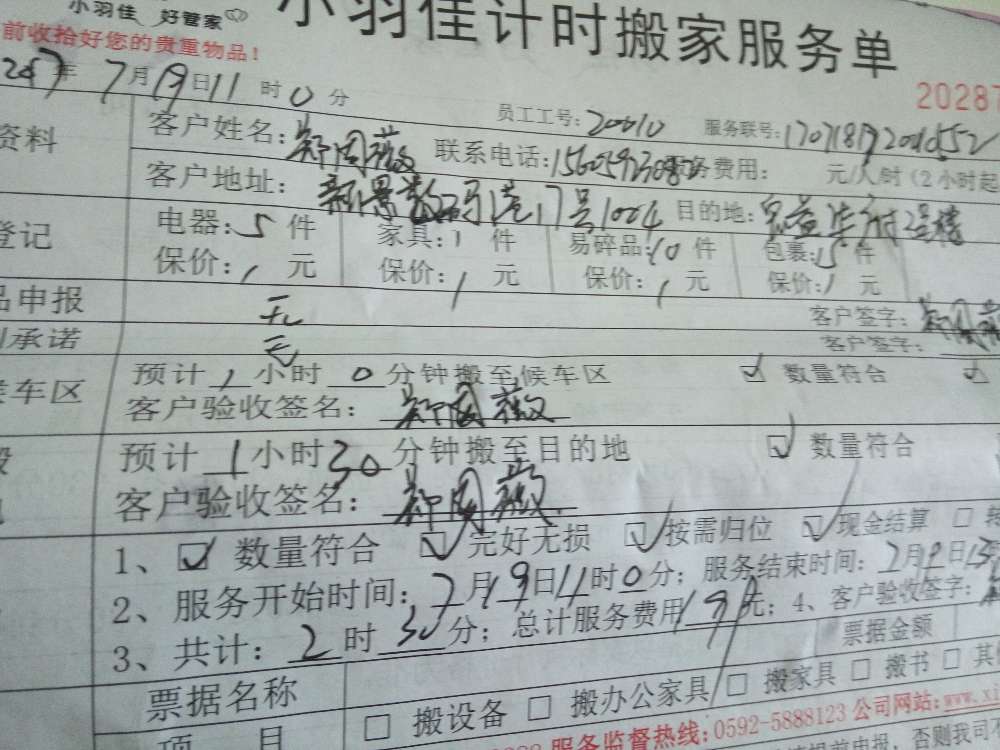 小羽佳 好管家
小羽佳计时搬家服务单
前收拾好您的贵重物品！
20287
年7月19日11时0分
员工工号：20010 服务联号：
资料 客户姓名：郑周薇 联系电话： 务费用： 元/人/时（2小时起
客户地址：新景数码港17号1004 目的地：
登记 电器：5件 家具：1件 易碎品：10件 包裹：15件
保价：1元 保价：1元 保价：1元 保价：1元
品申报 无 客户签字：郑周薇
承诺 无 客户签字：
候车区 预计1小时0分钟搬至候车区 数量符合
客户验收签名：郑周薇
预计1小时30分钟搬至目的地 数量符合
客户验收签名：郑周薇
1、 数量符合 完好无损 按需归位 现金结算
2、服务开始时间：7月19日11时0分；服务结束时间：7月19日13
3、共计：2时30分；总计服务费用 元；4、客户验收签字：
票据名称 票据金额
项目 搬设备 搬办公家具 搬家具 搬书 其他
服务监督热线：0592-5888123 公司网站：www.xi
前申报，否则我司不